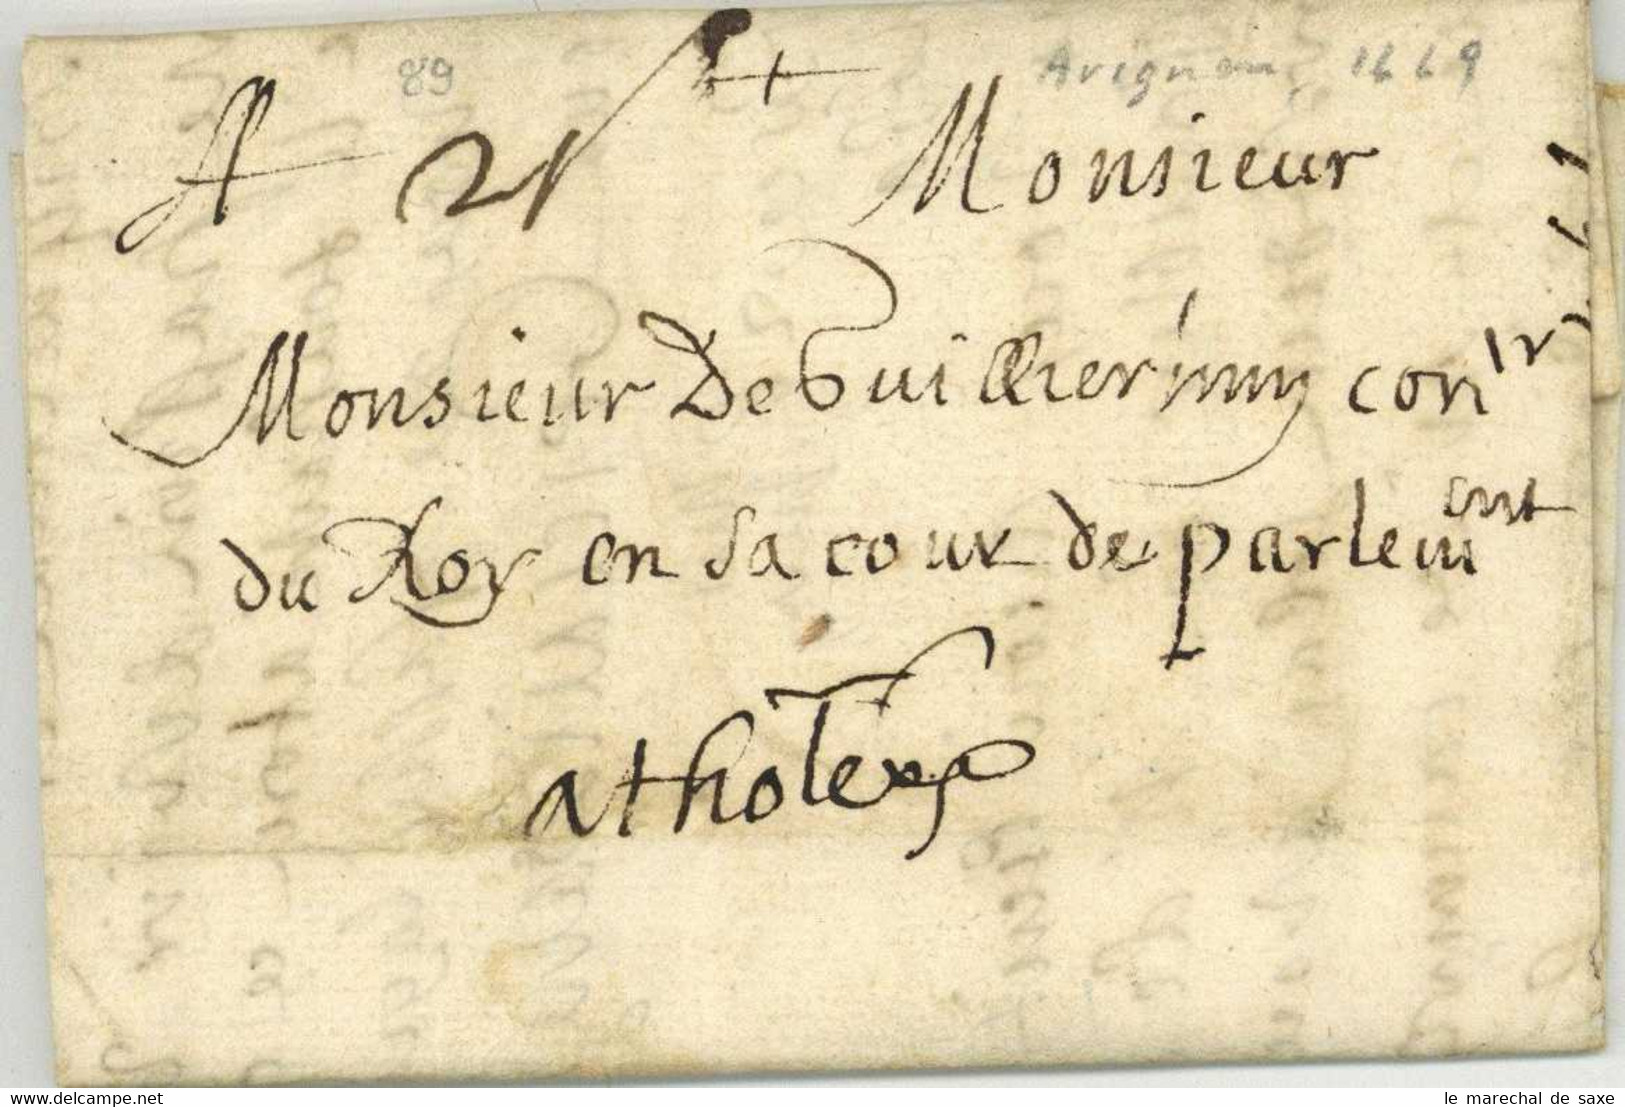 89
Avignon, 1669
A Monsieur
Monsieur De Guillierminy con^ir
du Roy en sa cour de parlem^ent
a tholeze
www.delcampe.net
le marechal de saxe